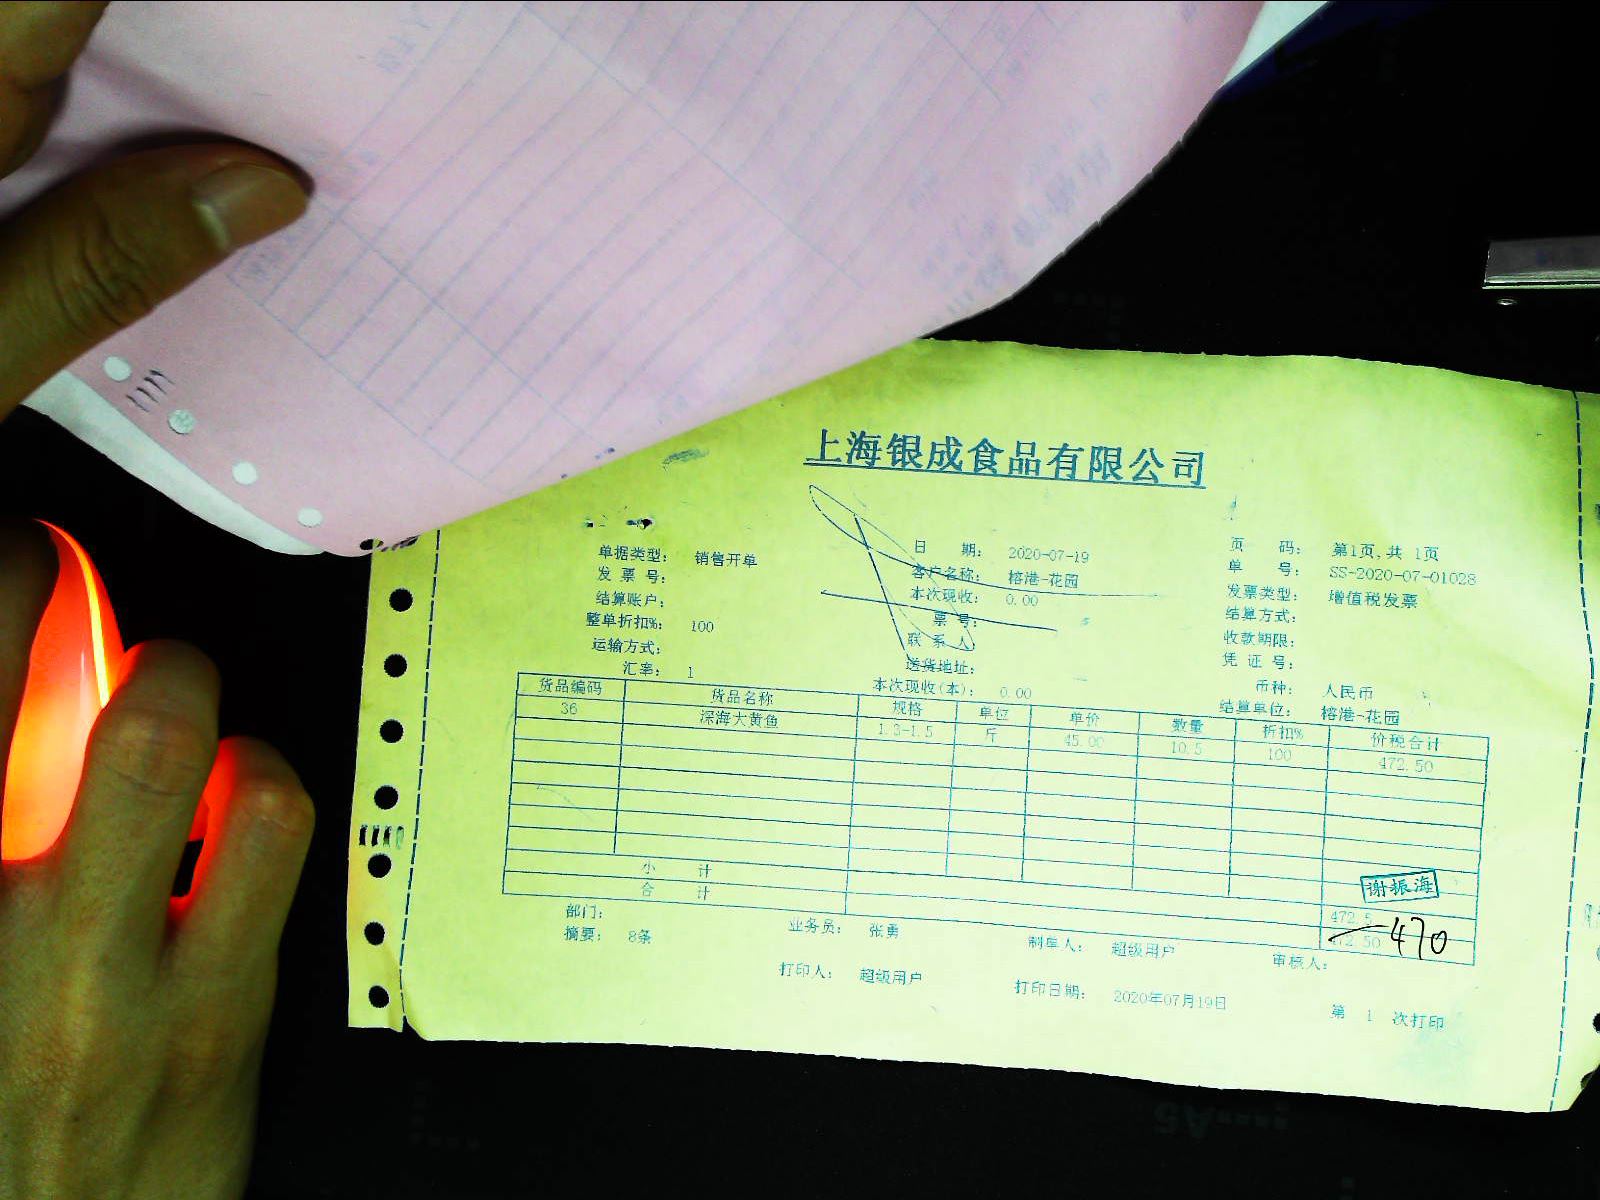 上海银成食品有限公司
单据类型: 销售开单 日 期: 2020-07-19 页 码: 第1页,共 1页
发 票 号: 客户名称: 榕港-花园 单 号: SS-2020-07-01028
结算账户: 本次现收: 0.00 发票类型: 增值税发票
整单折扣%: 100 票 号: 结算方式:
运输方式: 联 系 人: 收款期限:
汇率: 1 送货地址: 凭 证 号:
本次现收(本): 0.00 币种: 人民币
结算单位: 榕港-花园
货品编码 货品名称 规格 单位 单价 数量 折扣% 价税合计
36 深海大黄鱼 1.3-1.5 斤 45.00 10.5 100 472.50
谢振海
小 计 472.5
合 计 472.50 470
部门: 业务员: 张勇 制单人: 超级用户 审核人:
摘要: 8条
打印人: 超级用户 打印日期: 2020年07月19日 第 1 次打印